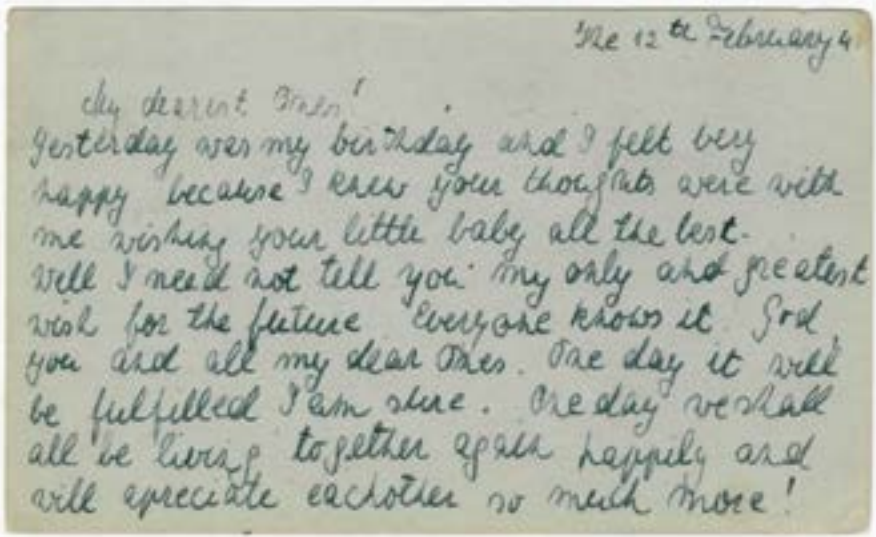 The 12th February 4
My dearest Ones!
Yesterday was my birthday and I felt very
happy because I knew your thoughts were with
me wishing your little baby all the best.
Well I need not tell you my only and greatest
wish for the future Everyone knows it God,
you and all my dear Ones. One day it will
be fulfilled I am sure. One day we shall
all be living together again happily and
will apreciate eachother so much more!